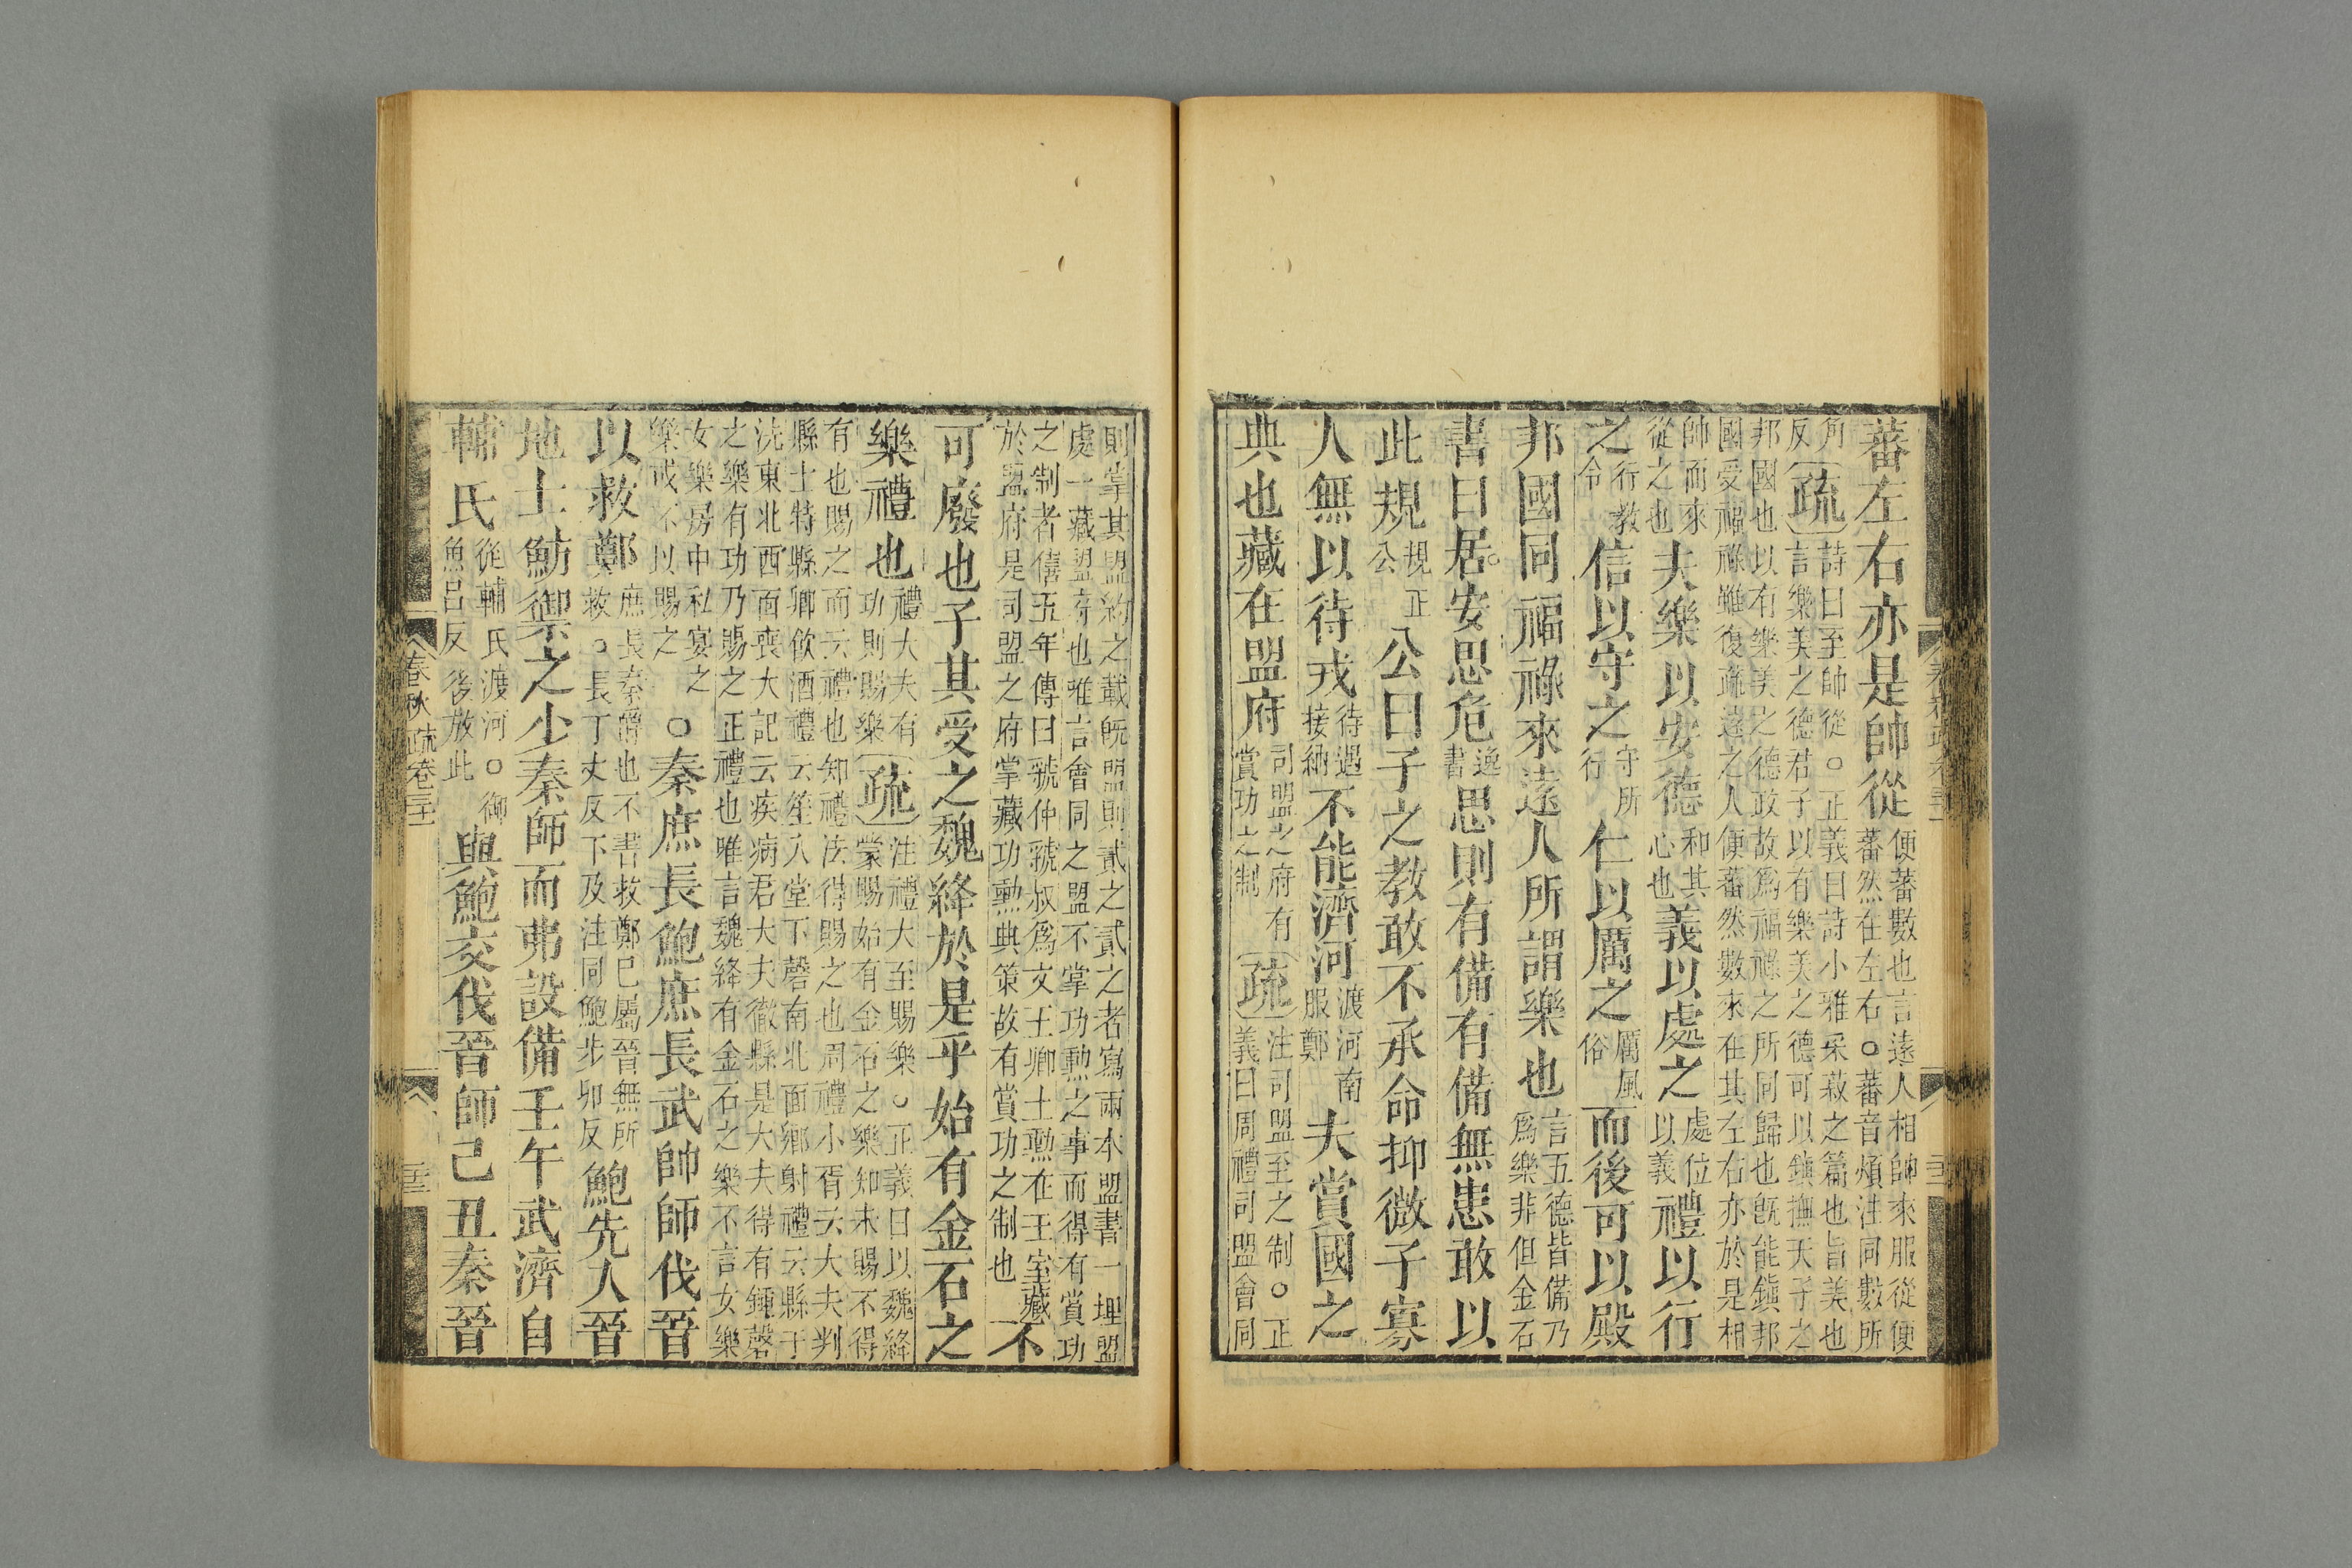 蕃左右亦是帥從便蕃數也言遠人相帥來服從便蕃然在左右○蕃音煩注同數所
角反疏詩曰至帥從○正義曰詩小雅采菽之篇也旨美也言樂美之德君子以有樂美之德可以鎮撫天子之
邦國也以有樂美之德政故爲福祿之所同歸也既能鎮邦國受福祿雖復疏遠之人便蕃然數來在其左右亦於是相
帥而來從之也夫樂以安德和其心也義以處之處位以義禮以行
之行教令信以守之守所行仁以厲之厲風俗而後可以殿
邦國同福祿來遠人所謂樂也言五德皆備乃爲樂非但金石
書曰居安思危逸書思則有備有備無患敢以
此規規正公公曰子之教敢不承命抑微子寡
人無以待戎待遇接納不能濟河渡河南服鄭夫賞國之
典也藏在盟府司盟之府有賞功之制疏注司盟至之制○正義曰周禮司盟會同
則掌其盟約之載既盟則貳之貳之者寫兩本盟書一埋盟處一藏盟府也唯言會同之盟不掌功勳之事而得有賞功
之制者僖五年傳曰虢仲虢叔爲文王卿士勳在王室藏於盟府是司盟之府掌藏功勳典策故有賞功之制也不
可廢也子其受之魏絳於是乎始有金石之
樂禮也禮大夫有功則賜樂疏注禮大至賜樂○正義曰以魏絳蒙賜始有金石之樂知未賜不得
有也賜之而云禮也知禮法得賜之也周禮小胥云大夫判縣士特縣鄉飲酒禮云笙入堂下磬南北面鄉射禮云縣于
洗東北西面喪大記云疾病君大夫徹縣是大夫得有鍾磬之樂有功乃賜之正禮也唯言魏絳有金石之樂不言女樂
女樂房中私宴之樂或不以賜之○秦庶長鮑庶長武帥師伐晉
以救鄭庶長秦爵也不書救鄭已屬晉無所救○長丁丈反下及注同鮑步卯反鮑先入晉
地士魴禦之少秦師而弗設備壬午武濟自
輔氏從輔氏渡河○御魚呂反後放此與鮑交伐晉師己丑秦晉
春秋疏卷三十一 二十三